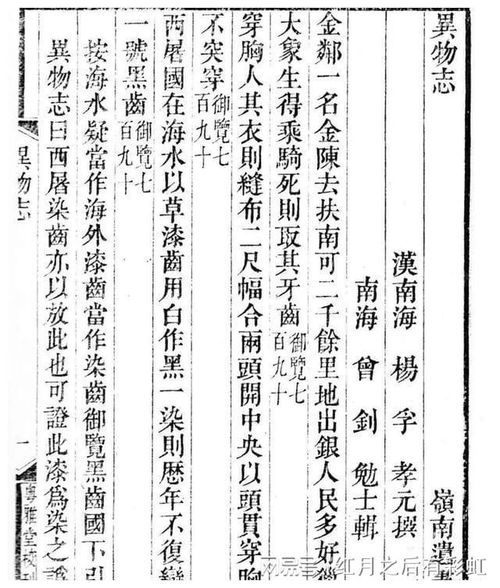 異物志　嶺南遺書
漢南海楊孚孝元撰
南海曾釗勉士輯
金鄰一名金陳去扶南可二千餘里地出銀人民多好獵
大象生得乘騎死則取其牙齒御覽七百九十
穿胸人其衣則縫布二尺幅合兩頭開中央以頭貫穿胸
不突穿御覽七百九十
西屠國在海水以草漆齒用白作黑一染則歷年不復變
一號黑齒御覽七百九十
按海水疑當作海外漆齒當作染齒御覽黑齒國下引
異物志曰西屠染齒亦以放此也可證此漆爲染之譌
異物志　一　粤雅堂校刊
红月之后有彩虹